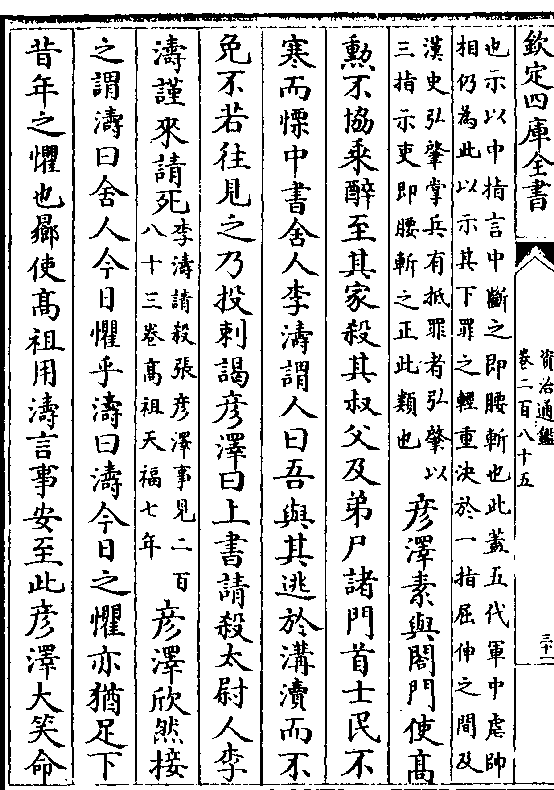 欽定四庫全書
資治通鑑
卷二百八十五
三十二
也示以中指言中斷之即腰斬也此蓋五代軍中虐帥
相仍為此以示其下罪之輕重決於一指屈伸之間及
漢史弘肇掌兵有抵罪者弘肇以
三指示吏即腰斬之正此類也
彦澤素與閤門使髙
勲不協乘醉至其家殺其叔父及弟尸諸門首士民不
寒而慄中書舍人李濤謂人曰吾與其逃於溝瀆而不
免不若往見之乃投刺謁彦澤曰上書請殺太尉人李
濤謹來請死
李濤請殺張彦澤事見二百
八十三卷髙祖天福七年
彦澤欣然接
之謂濤曰舍人今日懼乎濤曰濤今日之懼亦猶足下
昔年之懼也曏使髙祖用濤言事安至此彦澤大笑命